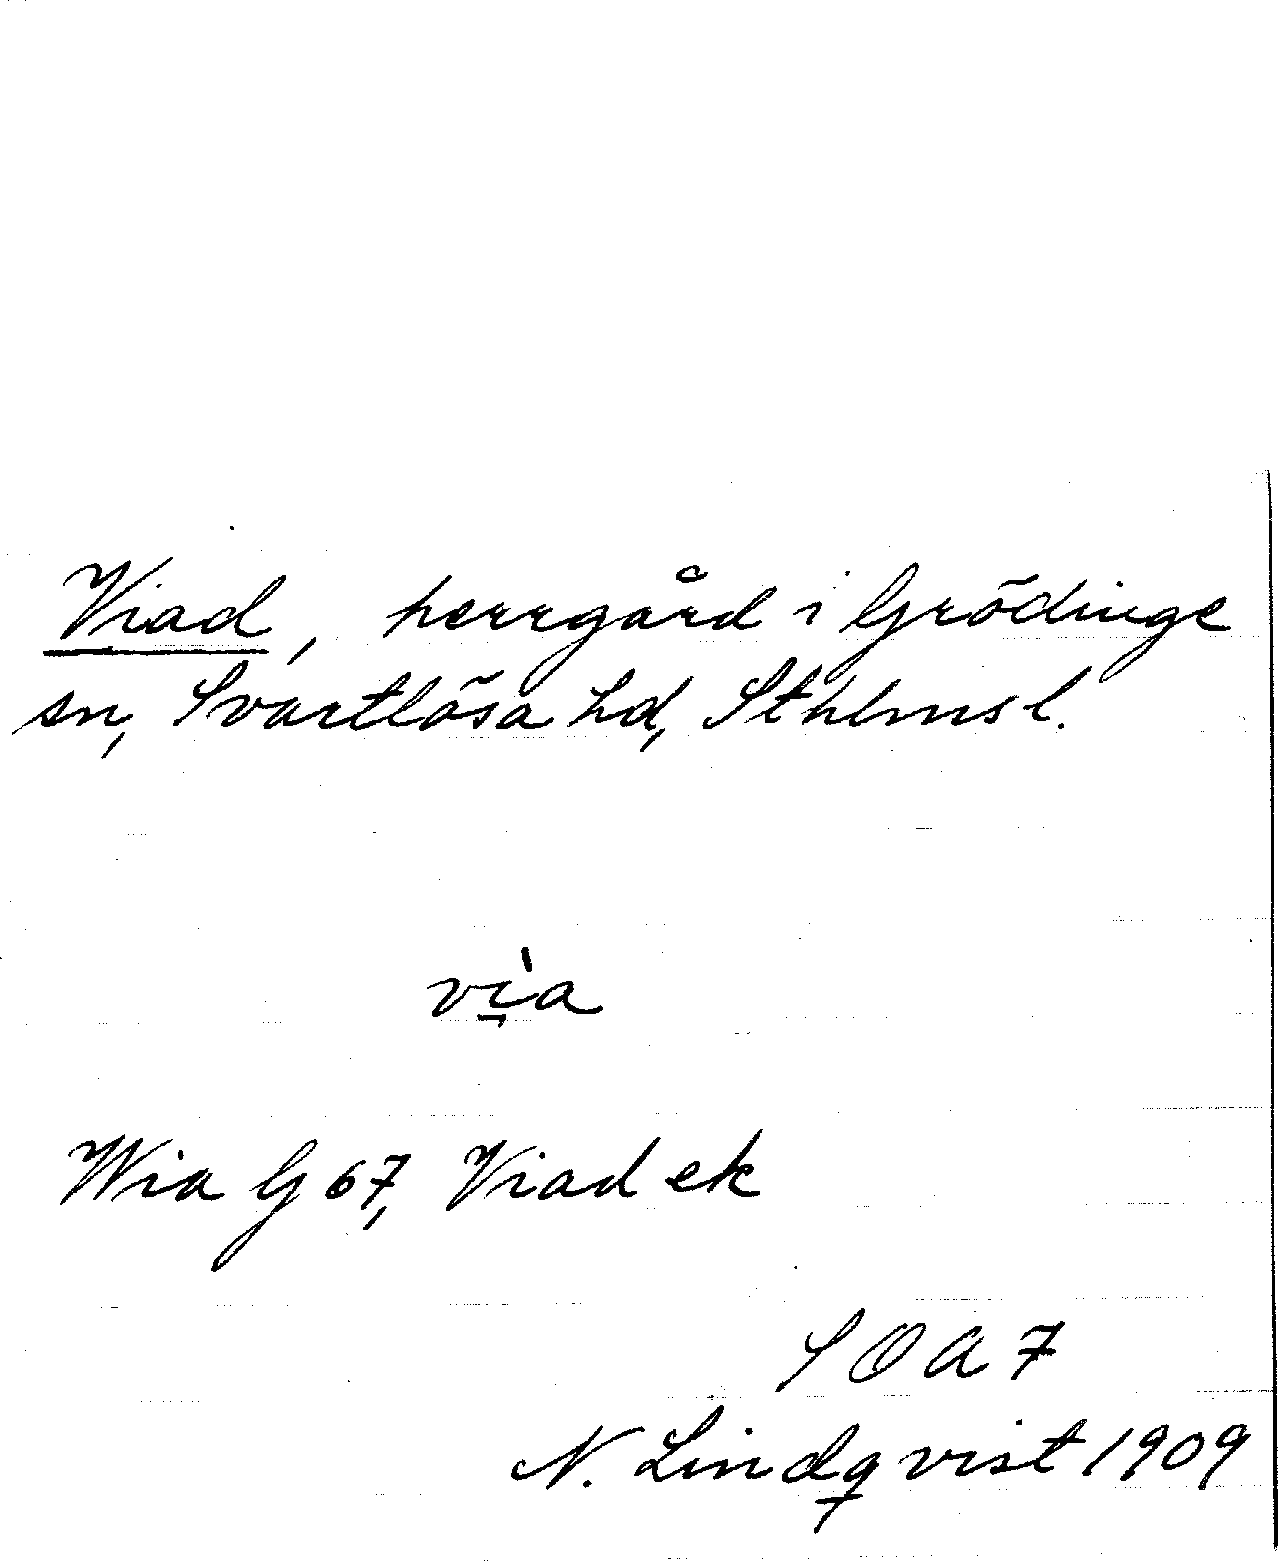 Viad, herrgård i Grödinge
sn, Svartlösa hd, Sthlms l.
vì̱a
Wia G 67, Viad ek
SOA 7
N. Lindqvist 1909